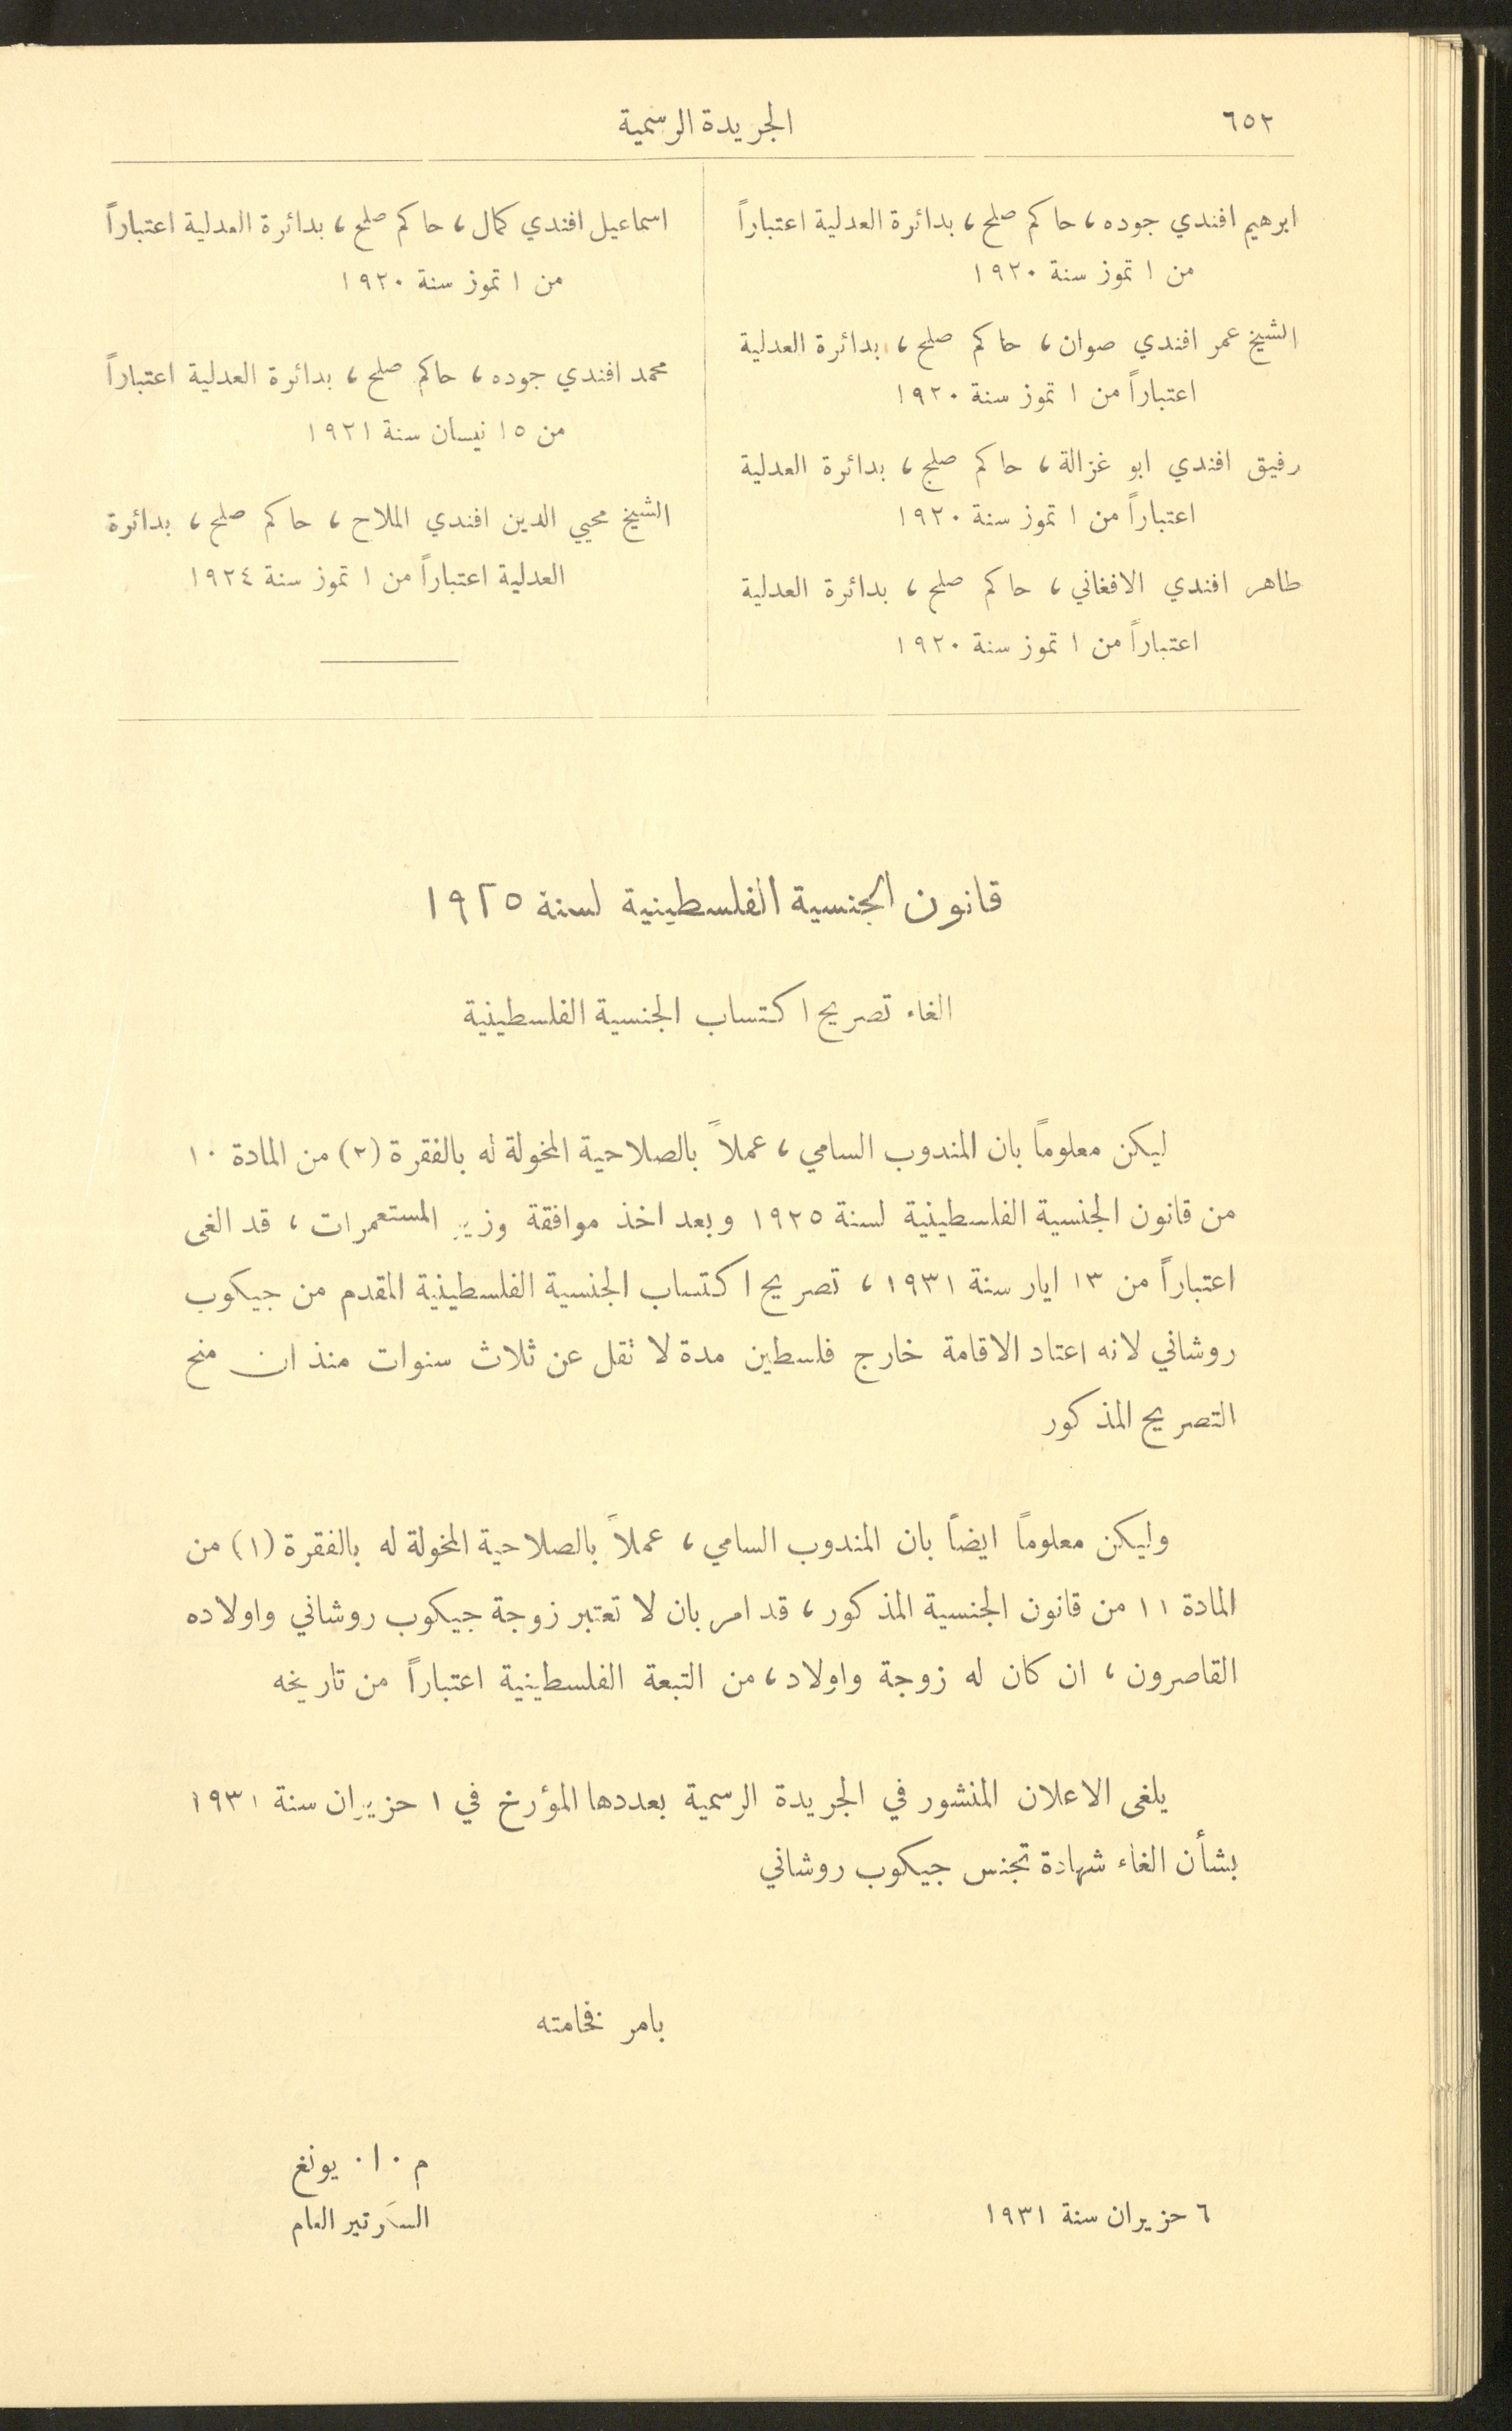 ٦٥٢
الجريدة الرسمية
ابرهيم افندي جوده، حاكم صلح، بدائرة العدلية اعتباراً
من ١ تموز سنة ١٩٢٠
الشيخ عمر افندي صوان، حاكم صلح، بدائرة العدلية
اعتباراً من ١ تموز سنة ١٩٢٠
رفيق افندي ابو غزالة، حاكم صلح، بدائرة العدلية
اعتباراً من ١ تموز سنة ١٩٢٠
طاهر افندي الافغاني، حاكم صلح، بدائرة العدلية
اعتباراً من ١ تموز سنة ١٩٢٠
اسماعيل افندي كمال، حاكم صلح، بدائرة العدلية اعتباراً
من ١ تموز سنة ١٩٢٠
محمد افندي جوده، حاكم صلح، بدائرة العدلية اعتباراً
من ١٥ نيسان سنة ١٩٢١
الشيخ محيي الدين افندي الملاح، حاكم صلح، بدائرة
العدلية اعتباراً من ١ تموز سنة ١٩٢٤
قانون الجنسية الفلسطينية لسنة ١٩٢٥
الغاء تصريح اكتساب الجنسية الفلسطينية
ليكن معلوماً بان المندوب السامي، عملاً بالصلاحية المخولة له بالفقرة (٢) من المادة ١٠
من قانون الجنسية الفلسطينية لسنة ١٩٢٥ وبعد اخذ موافقة وزير المستعمرات، قد الغى
اعتباراً من ١٣ ايار سنة ١٩٣١، تصريح اكتساب الجنسية الفلسطينية المقدم من جيكوب
روشاني لانه اعتاد الاقامة خارج فلسطين مدة لا تقل عن ثلاث سنوات منذ ان منح
التصريح المذكور
وليكن معلوماً ايضاً بان المندوب السامي، عملاً بالصلاحية المخولة له بالفقرة (١) من
المادة ١١ من قانون الجنسية المذكور، قد امر بان لا تعتبر زوجة جيكوب روشاني واولاده
القاصرون، ان كان له زوجة واولاد، من التبعة الفلسطينية اعتباراً من تاريخه
يلغى الاعلان المنشور في الجريدة الرسمية بعددها المؤرخ في ١ حزيران سنة ١٩٣١
بشأن الغاء شهادة تجنس جيكوب روشاني
بامر فخامته
م ٠ ا ٠ يونغ
السكرتير العام
٦ حزيران سنة ١٩٣١